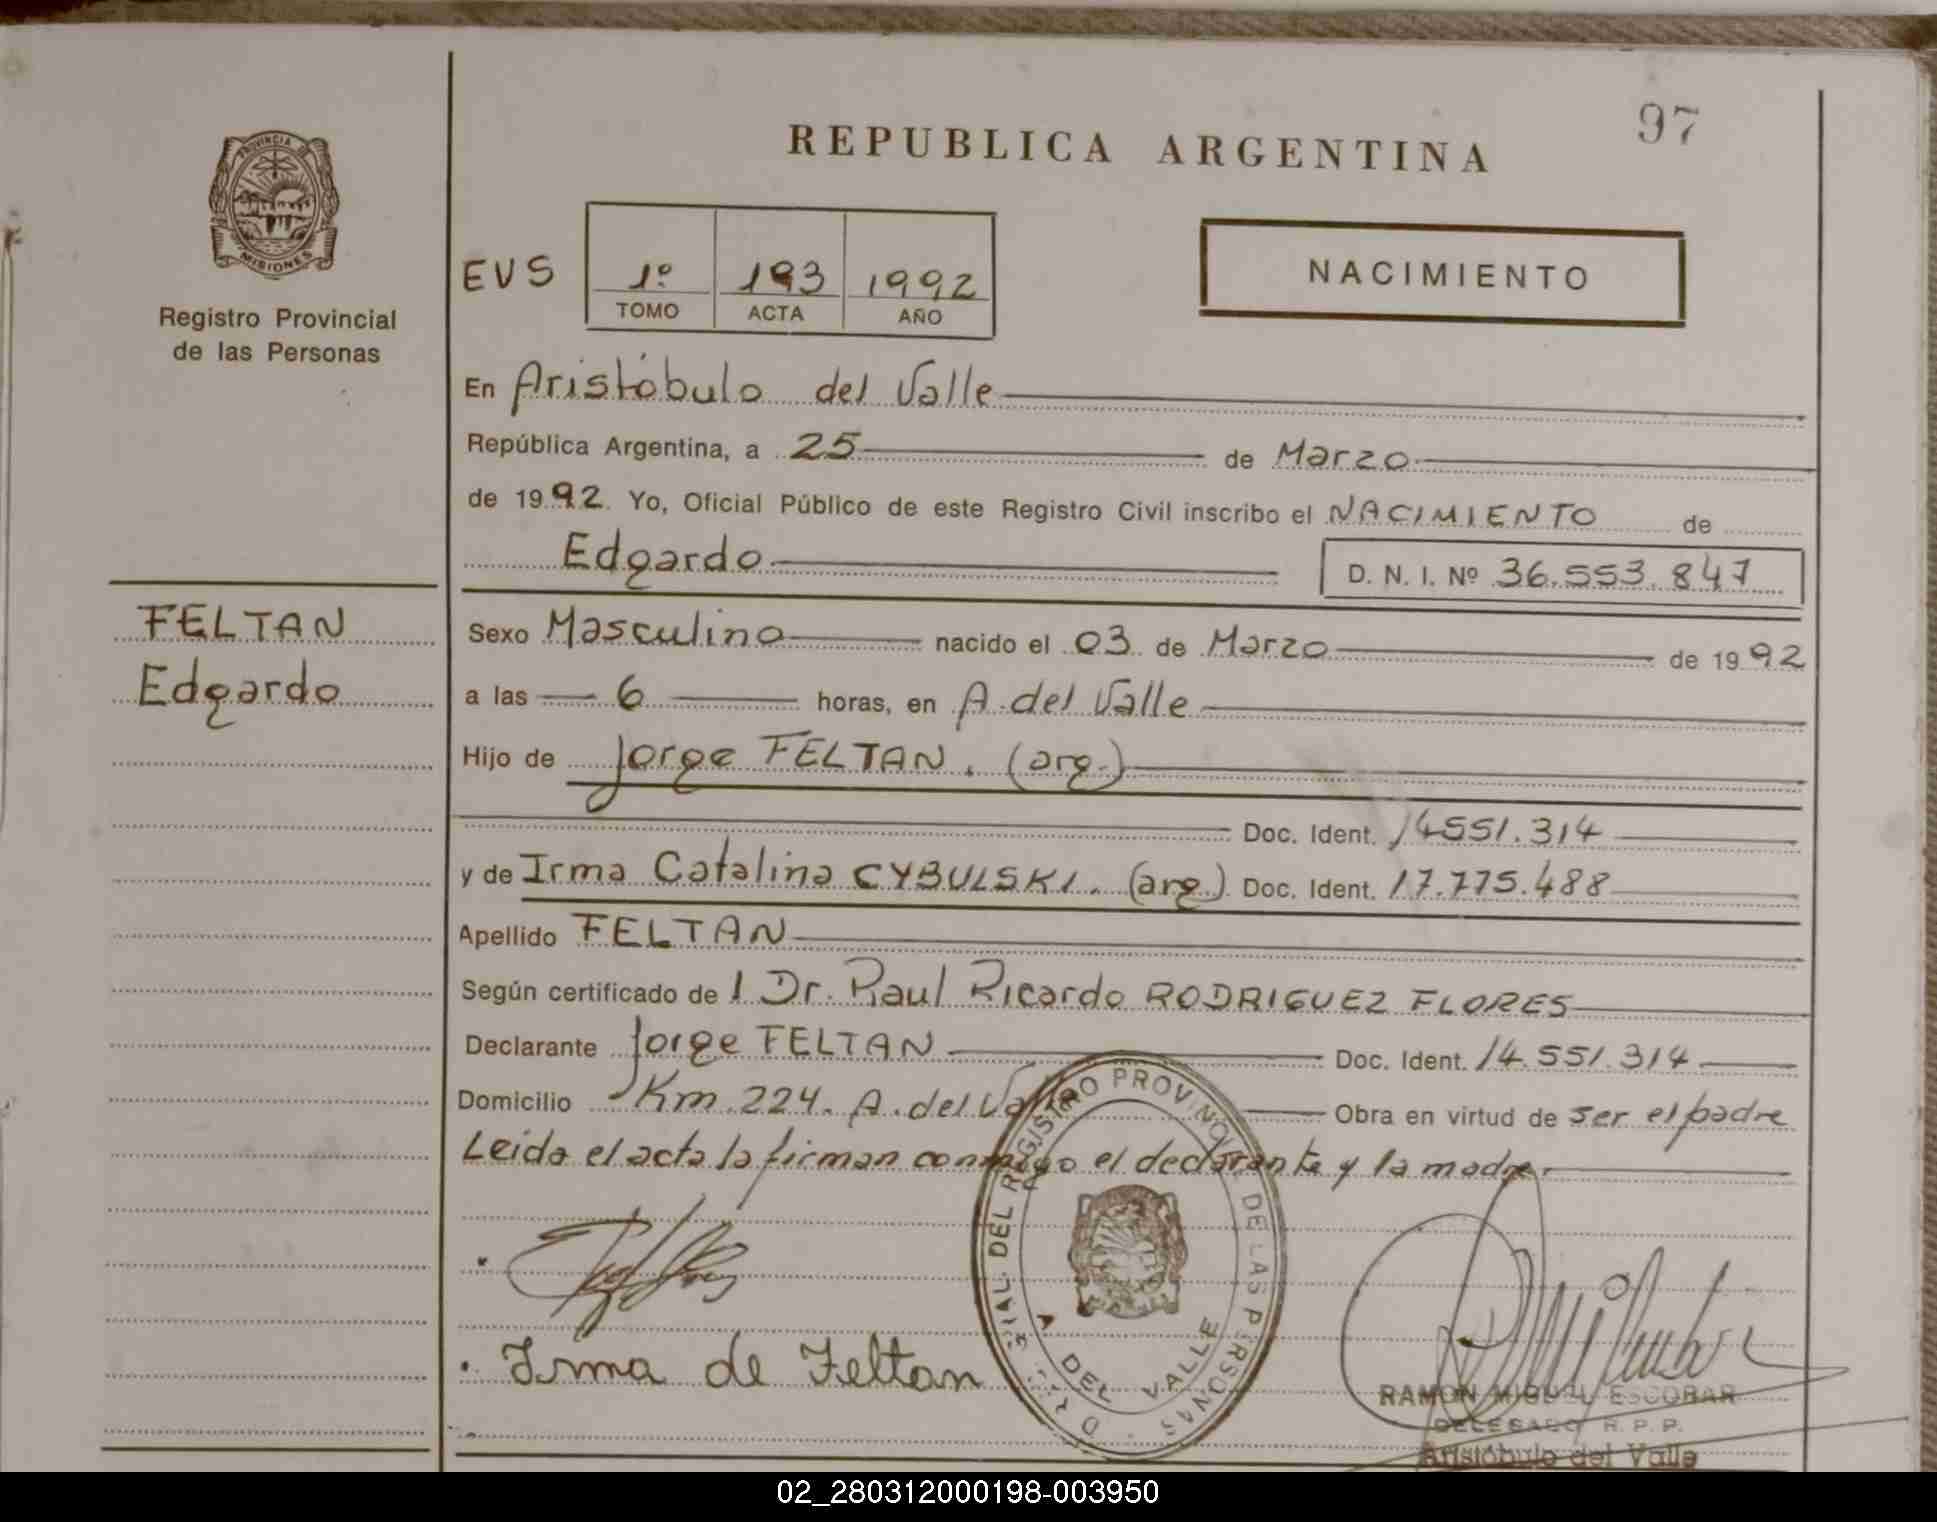 97
REPUBLICA ARGENTINA
PROVINCIA DE
MISIONES
Registro Provincial
de las Personas
EVS
1º 193 1992
TOMO ACTA AÑO
NACIMIENTO
En Aristóbulo del Valle
República Argentina, a 25 de Marzo
de 1992. Yo, Oficial Público de este Registro Civil inscribo el NACIMIENTO de
Edgardo D. N. I. Nº 36.553.847
FELTAN
Edgardo
Sexo Masculino nacido el 03 de Marzo de 1992
a las 6 horas, en A. del Valle
Hijo de Jorge FELTAN. (arg.)
Doc. Ident. 14551.314
y de Irma Catalina CYBULSKI. (arg.) Doc. Ident. 17.775.488
Apellido FELTAN
Según certificado de l Dr. Raul Ricardo RODRIGUEZ FLORES
Declarante Jorge FELTAN Doc. Ident. 14.551.314
Domicilio Km. 224. A. del Valle Obra en virtud de ser el padre
Leida el acta la firman conmigo el declarante y la madre.
DEL REGISTRO PROVINCIAL DE LAS PERSONAS
A DEL VALLE
Irma de Feltan
RAMON MIGUEL ESCOBAR
DELEGADO R. P. P.
Aristóbulo del Valle
02_280312000198-003950